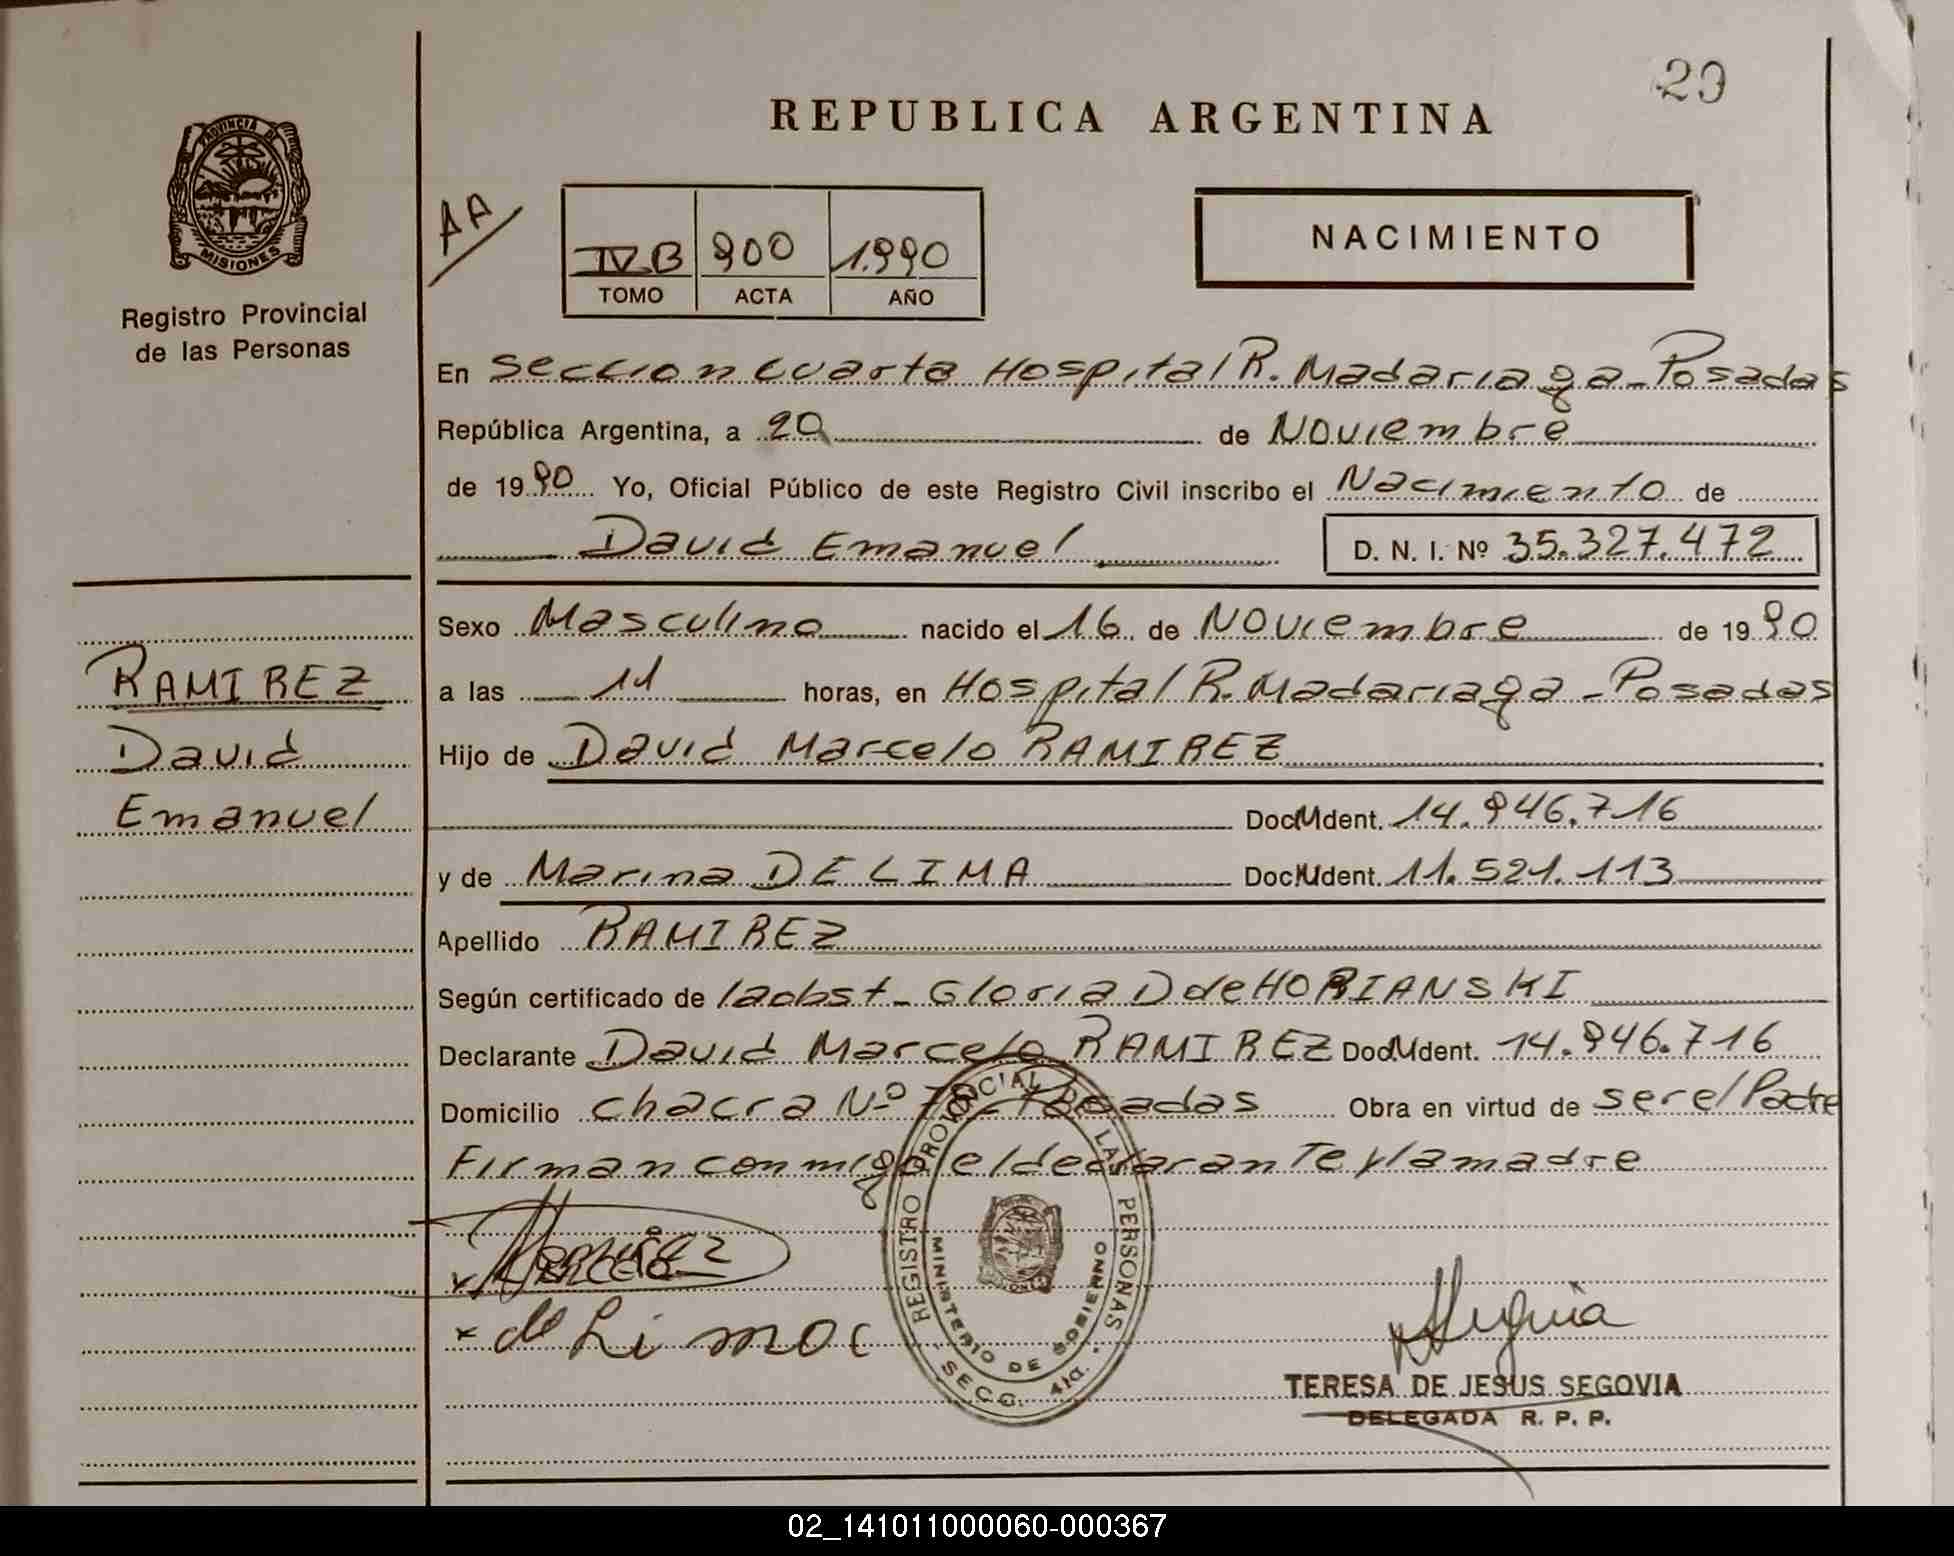 29
REPUBLICA ARGENTINA
PROVINCIA DE
MISIONES
Registro Provincial
de las Personas
AA
IV B 900 1.990
TOMO ACTA AÑO
NACIMIENTO
En Seccion Cuarta Hospital R. Madariaga - Posadas
República Argentina, a 20 de Noviembre
de 1990 Yo, Oficial Público de este Registro Civil inscribo el Nacimiento de
David Emanuel D. N. I. Nº 35.327.472
Sexo Masculino nacido el 16 de Noviembre de 1990
a las 11 horas, en Hospital R. Madariaga - Posadas
Hijo de David Marcelo RAMIREZ
Doc. Ident. 14.946.716
y de Marina DE LIMA Doc. Ident. 11.521.113
Apellido RAMIREZ
Según certificado de la obst - Gloria D de HORIANSKI
Declarante David Marcelo RAMIREZ Doc. Ident. 14.946.716
Domicilio chacra Nº - Posadas Obra en virtud de ser el Padre
Firman conmigo el declarante y la madre
RAMIREZ
David
Emanuel
de Lima
REGISTRO PROVINCIAL DE LAS PERSONAS
MINISTERIO DE GOBIERNO
SECC. 4ta.
TERESA DE JESUS SEGOVIA
DELEGADA R. P. P.
02_141011000060-000367